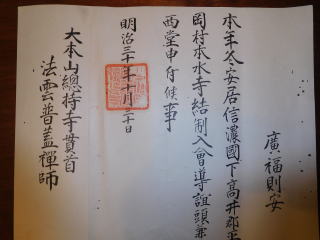 廣福則安
本年冬安居信濃國下高井郡平
岡村本水寺結制入會導誼頭兼
西堂申付候事
明治三十年十月二十日
大本山總持寺貫首
法雲普蓋禅師